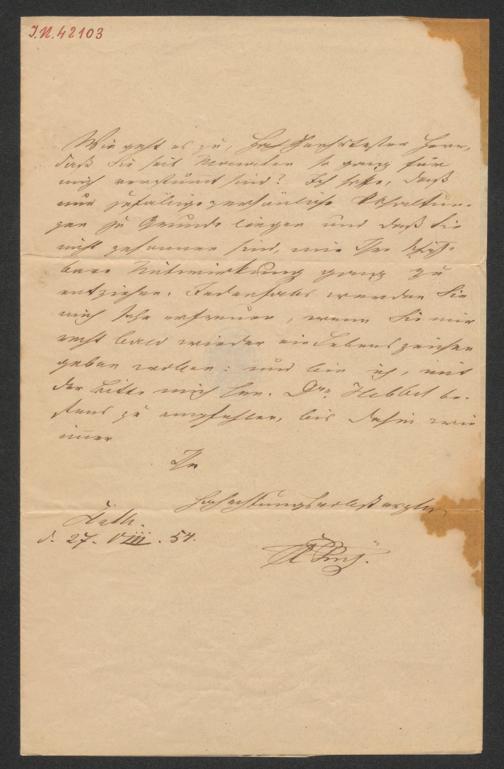 I.N. 42103
Wie geht es zu, hochverehrtester Herr,
daß Sie seit Monaten so ganz für
mich verstummt sind? Ich hoffe, daß
nur zufällige persönliche Abhaltun-
gen zu Grunde liegen und daß Sie
nicht gesonnen sind, mir Ihre schätz-
bare Mitwirkung ganz zu
entziehen. Jedenfalls werden Sie
mich sehr erfreuen, wenn Sie mir
recht bald wieder ein Lebenszeichen
geben wollen; und bin ich, mit
der Bitte mich Hrn. Dr. Hebbel be-
stens zu empfehlen, bis dahin wie
immer
Ihr
hochachtungsvollst ergebener
d. 27. VIII. 54.